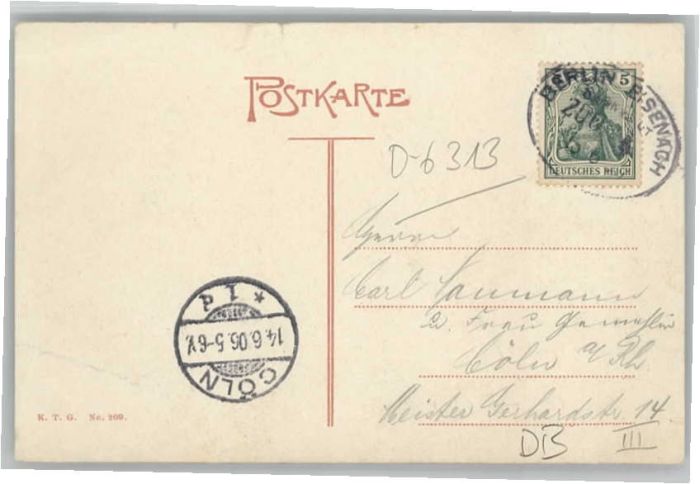 POSTKARTE
BERLIN EISENACH
ZUG
5
DEUTSCHES REICH
D-6313
Herrn
Carl Naumann
u. Frau Gemahlin
Cöln a/Rh.
Meister Gerhardstr. 14
III
DB
* 1 d
14.6.06.5-6V.
CÖLN
K. T. G. No. 269.